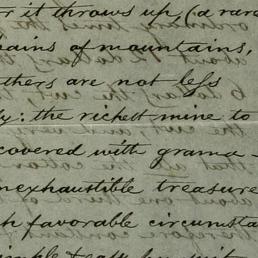 r it throws up, (a rare
hains of mountains,
thers are not less
ly: the richest mine to
covered with grama-
nexhaustible treasure
h favorable circumsta
imple & easy pursuit